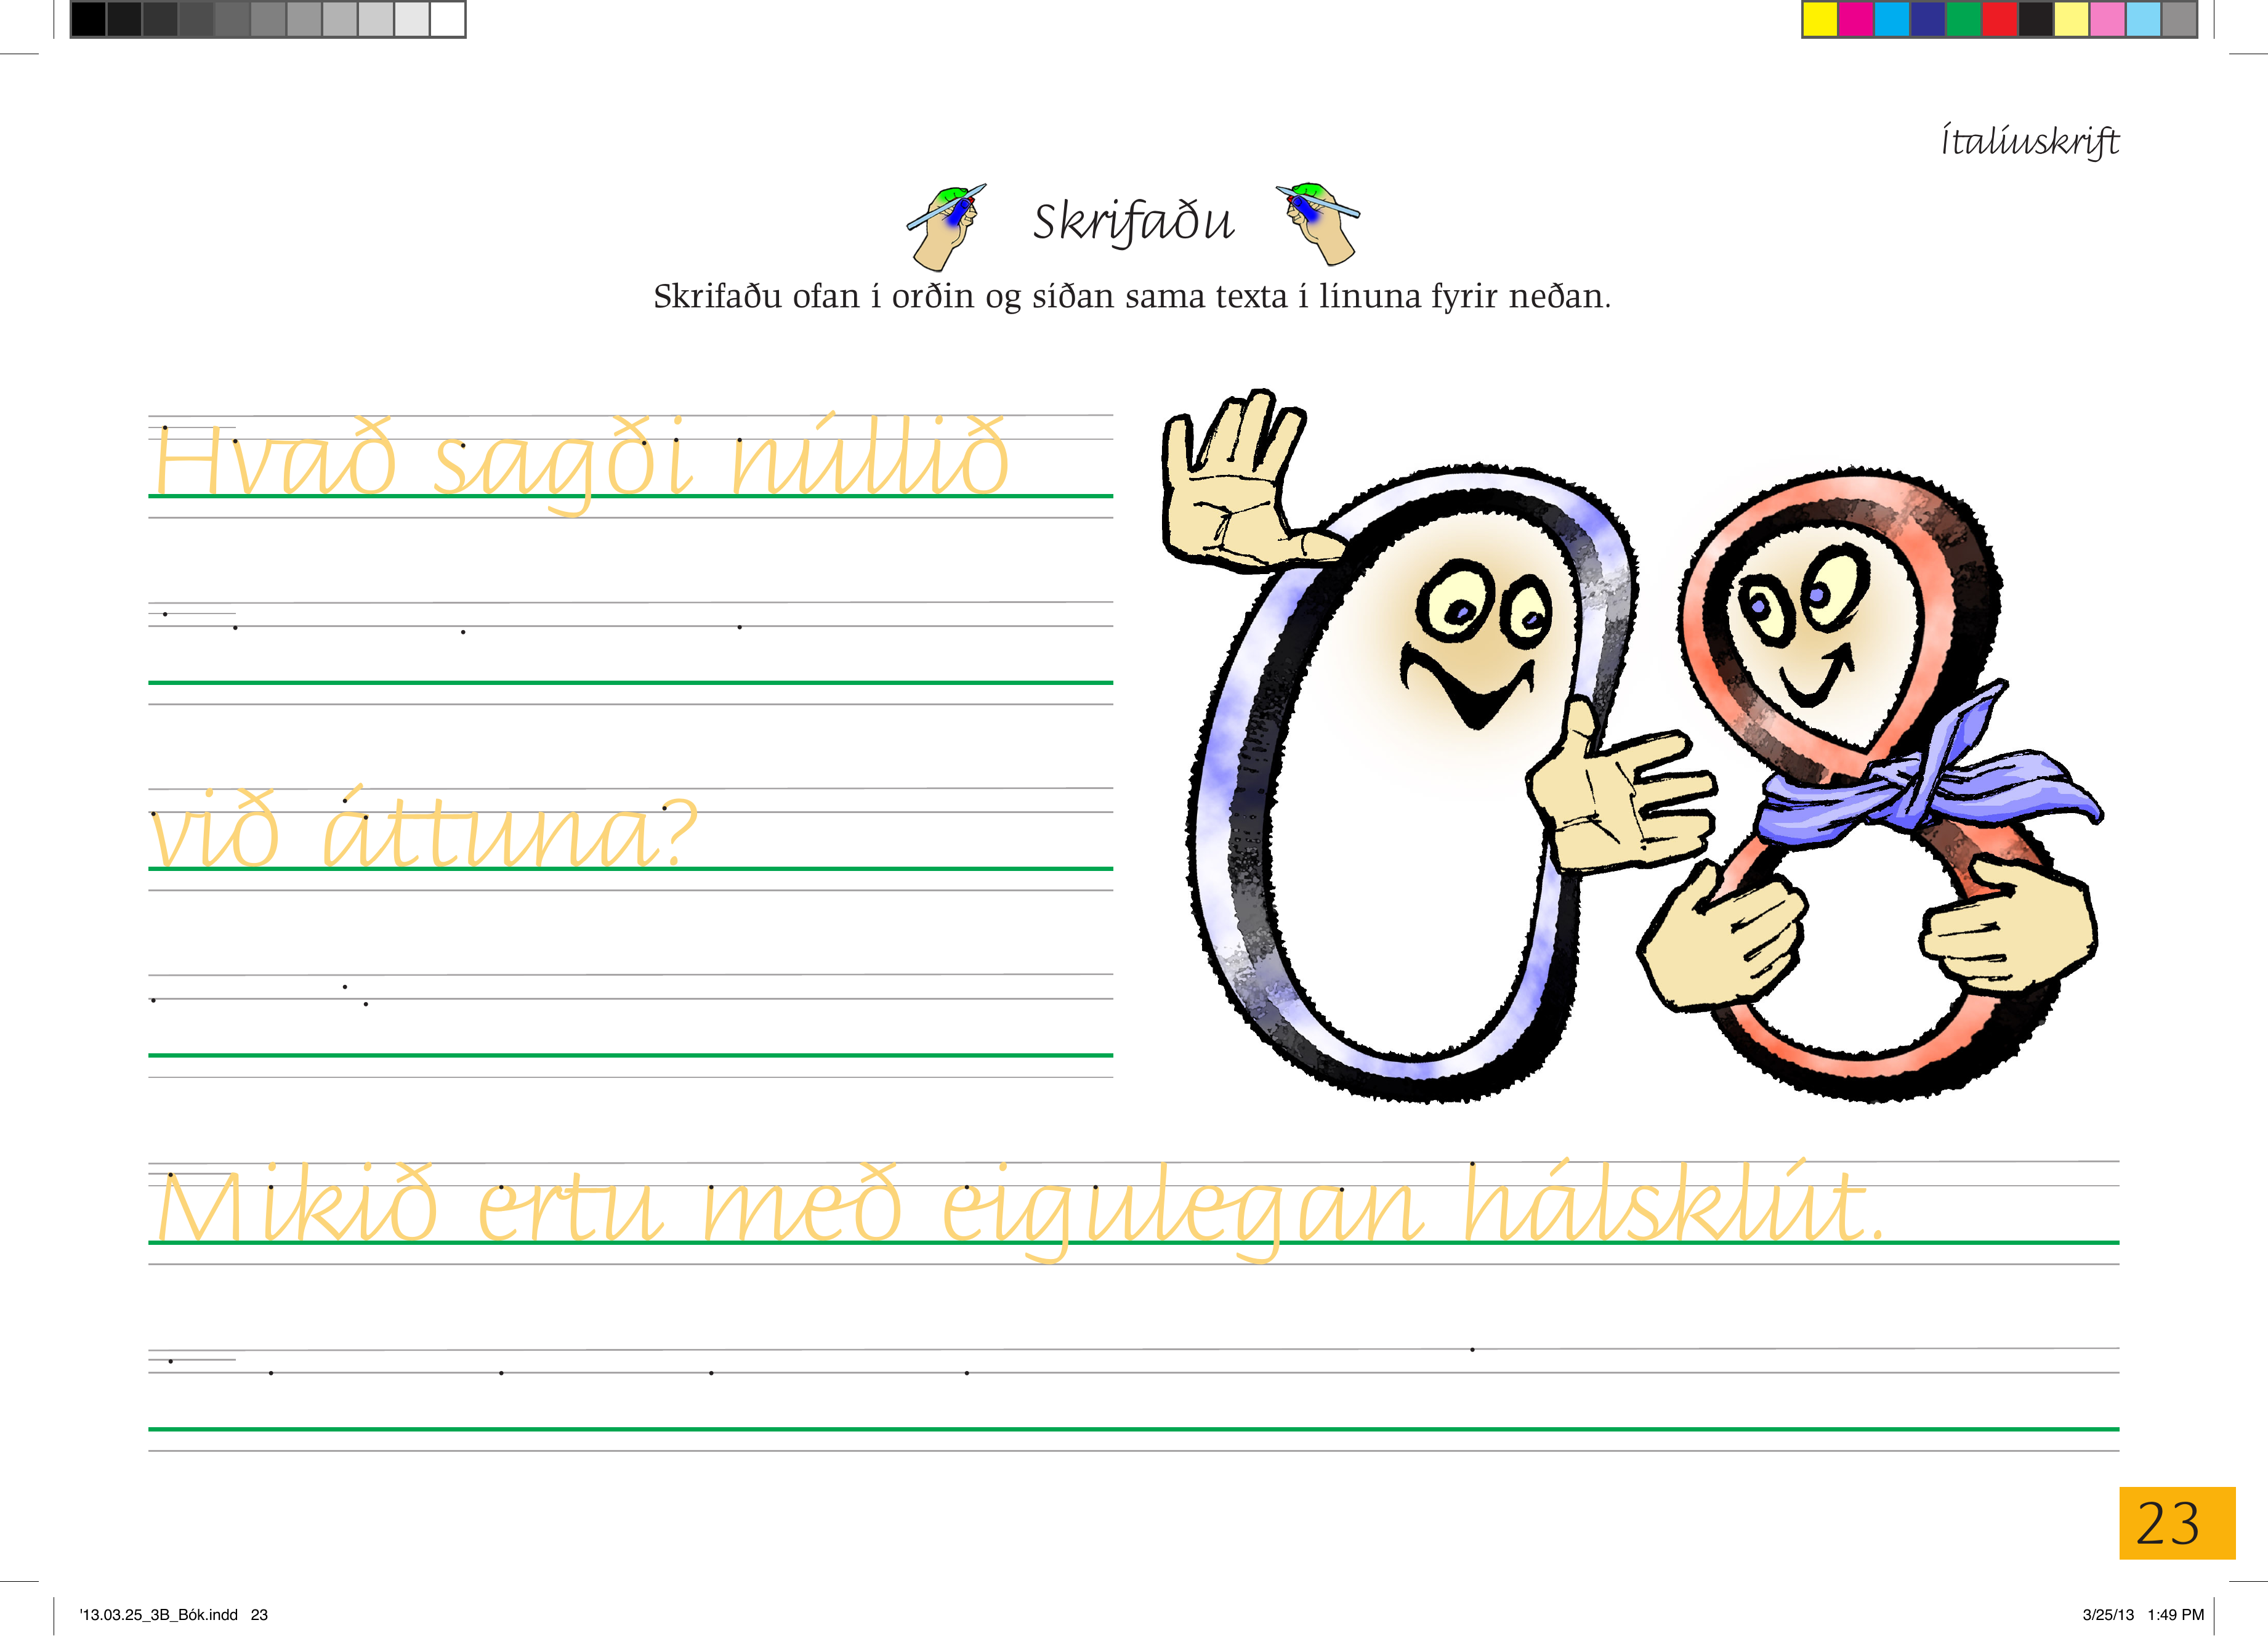 Ítalíuskrift
Skrifaðu
Skrifaðu ofan í orðin og síðan sama texta í línuna fyrir neðan.
Hvað sagði núllið
við áttuna?
Mikið ertu með eigulegan hálsklút.
23
'13.03.25_3B_Bók.indd 23
3/25/13 1:49 PM